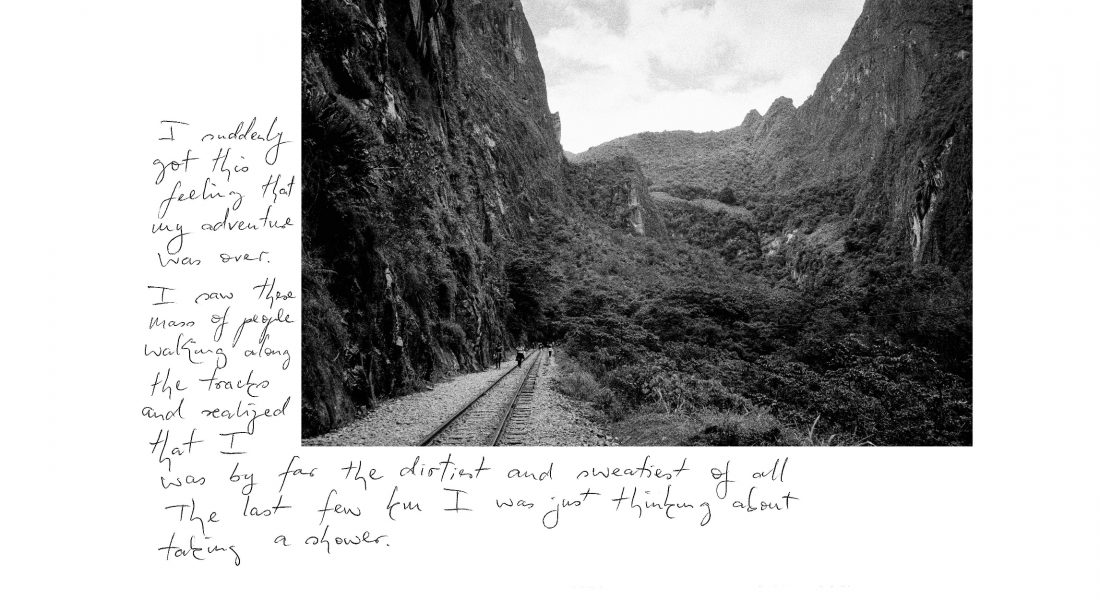 I suddenly
got this
feeling that
my adventure
was over.
I saw these
mass of people
walking along
the tracks
and realized
that I
was by far the dirtiest and sweatiest of all
The last few km I was just thinking about
taking a shower.